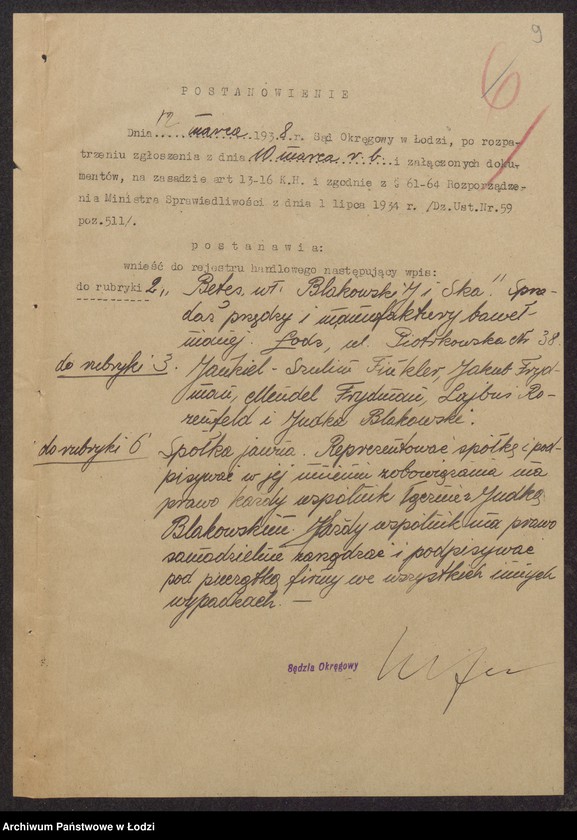 9
6
POSTANOWIENIE
Dnia 12 marca 1938 r. Sąd Okręgowy w Łodzi, po rozpa-
trzeniu zgłoszenia z dnia 10 marca r. b. i załączonych doku-
mentów, na zasadzie art 13-16 K.H. i zgodnie z § 61-64 Rozporządze-
nia Ministra Sprawiedliwości z dnia 1 lipca 1934 r. /Dz.Ust.Nr.59
poz.511/.
postanawia:
wnieść do rejestru handlowego następujący wpis:
do rubryki 2. „Betes, wł. Blakowski J i Ska." Sprze-
daż przędzy i manufaktury baweł-
nianej. Łódź, ul. Piotrkowska Nr 38.
do rubryki 3. Jankiel-Szulim Finkler, Jakub Fryd-
man, Mendel Frydman, Lajbuś Ro-
zenfeld i Judka Blakowski.
do rubryki 6 Spółka jawna. Reprezentować spółkę i pod-
pisywać w jej imieniu zobowiązania ma
prawo każdy wspólnik łącznie z Judką
Blakowskim. Każdy wspólnik ma prawo
samodzielnie zarządzać i podpisywać
pod pieczątką firmy we wszystkich innych
wypadkach. —
Sędzia Okręgowy
Archiwum Państwowe w Łodzi